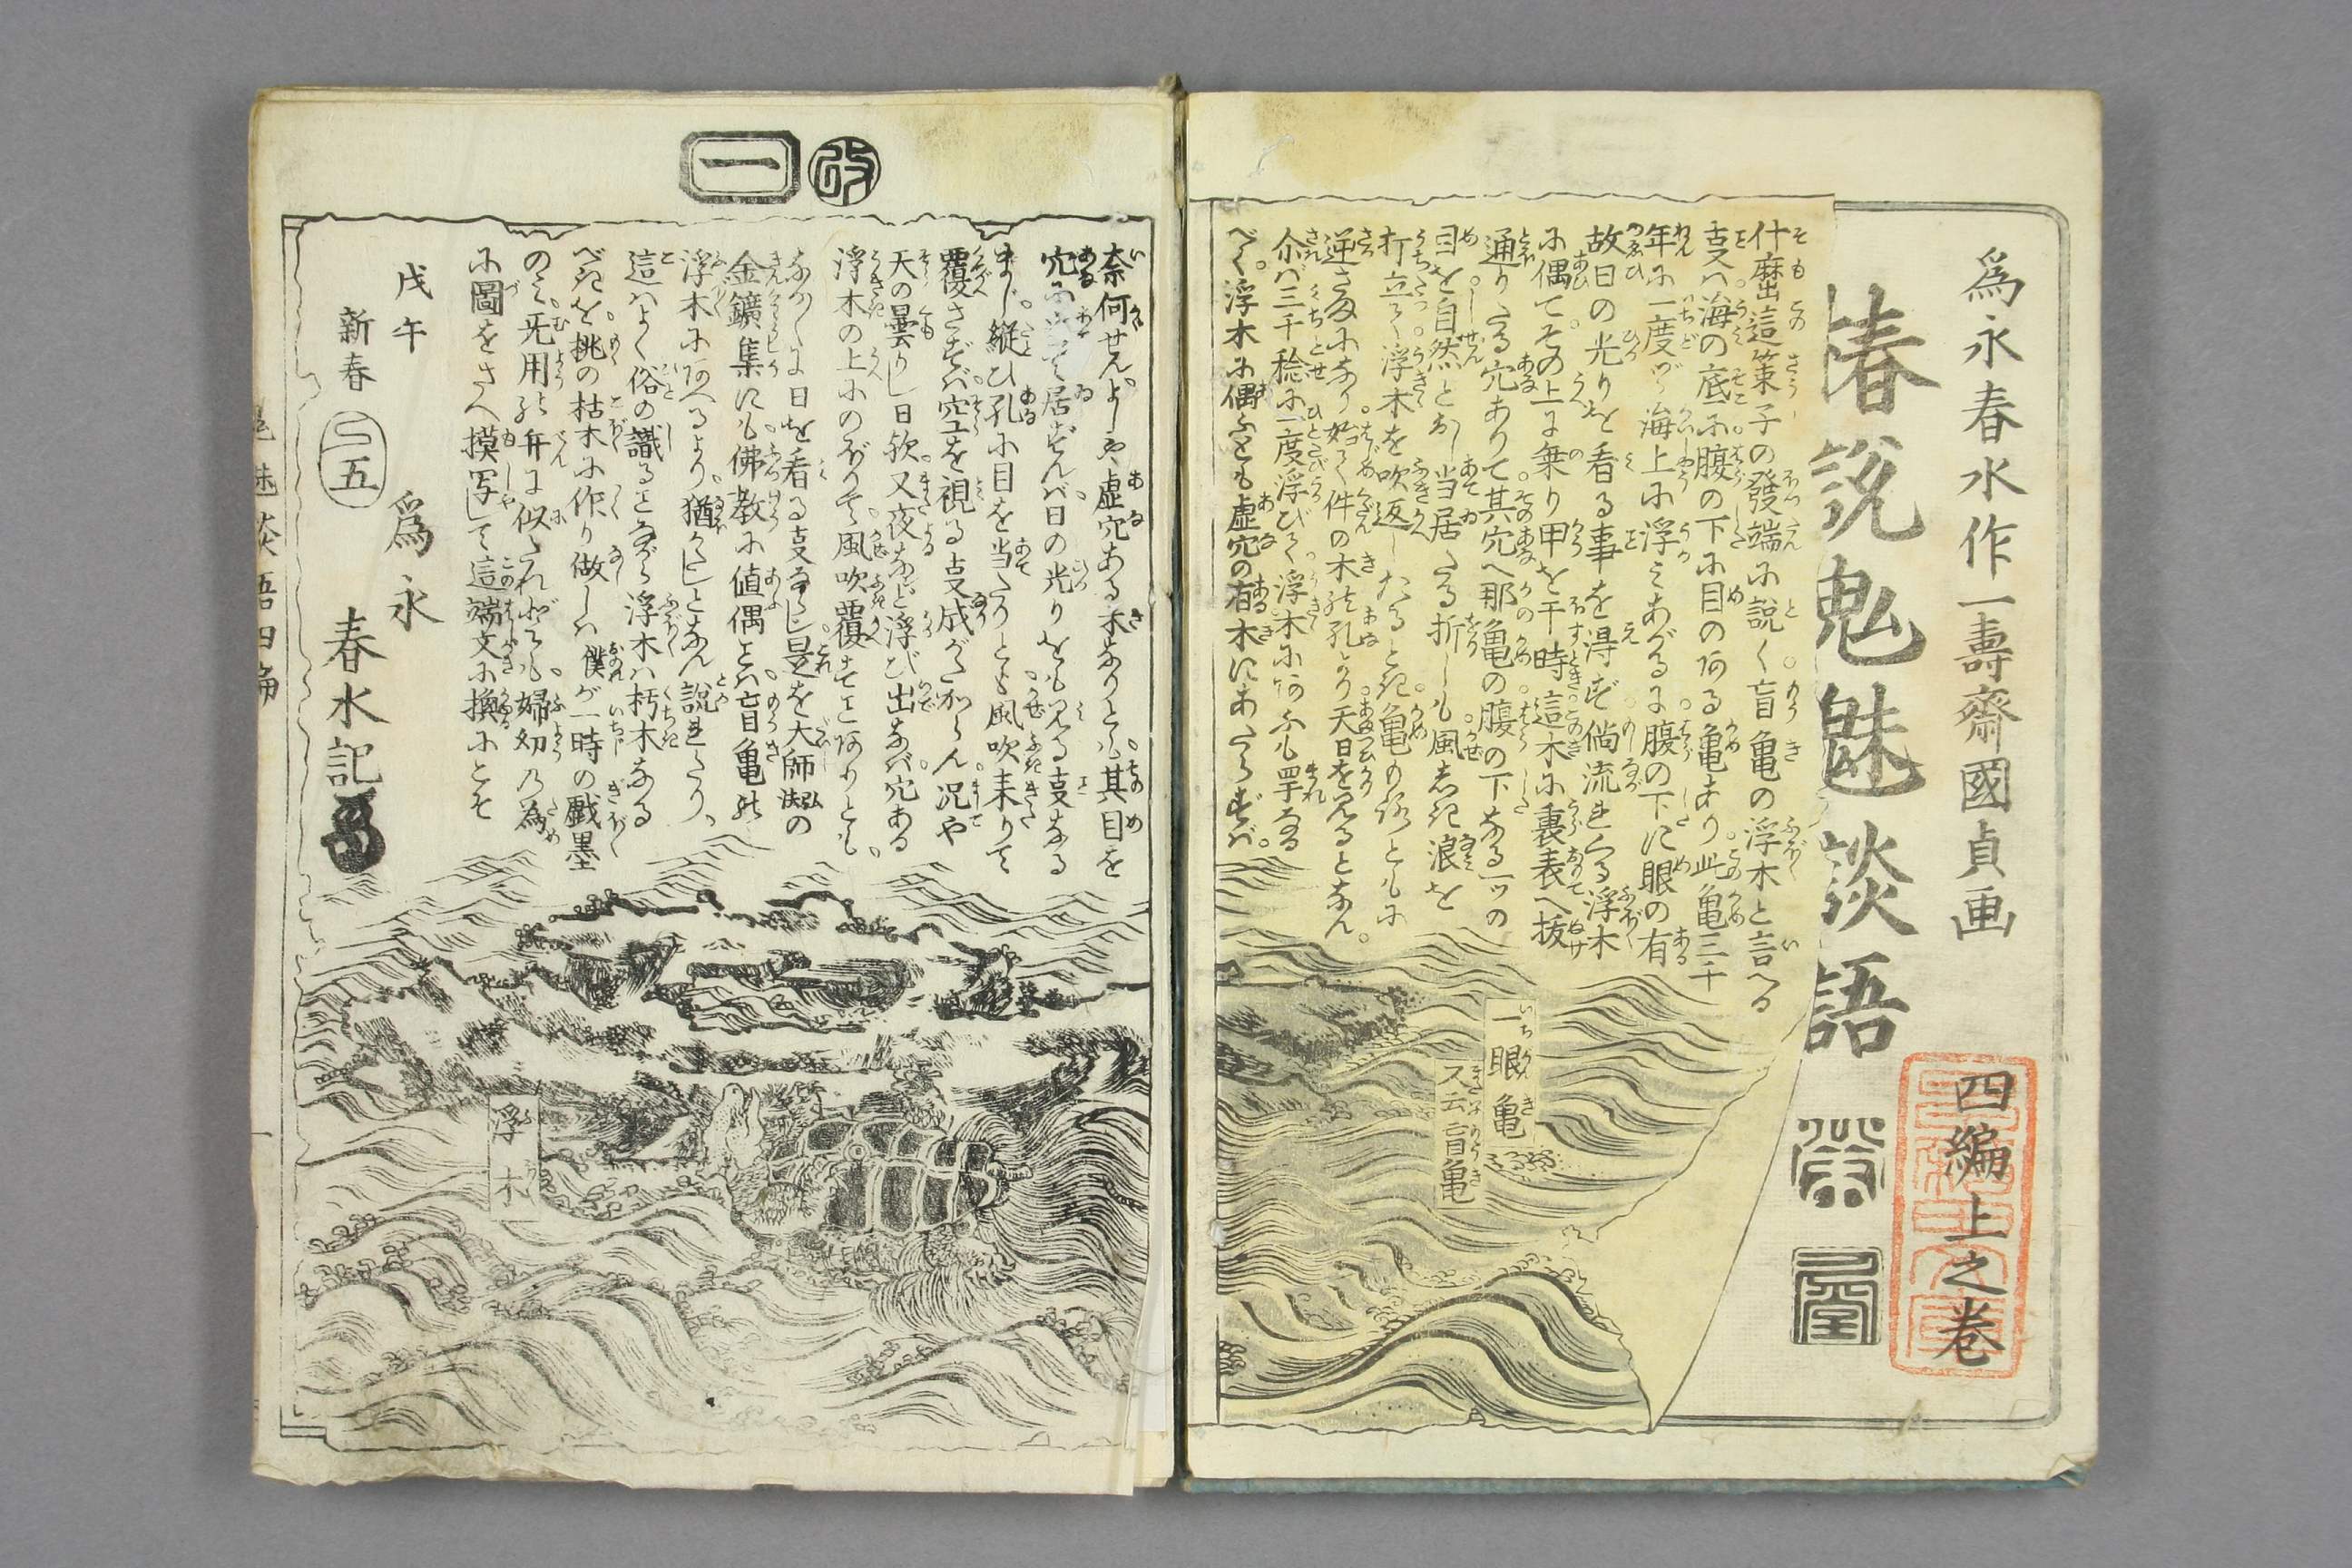 為永春水作一壽齋國貞画
四編上之巻
春說鬽魅談語
什麽這策子の發端に説く盲亀の浮木と言へる
㕝は海の底に腹の下に目のある亀あり此亀三千
年に一度づゝ海上に浮みあがるに腹の下に眼の有
故日の光りを看る事を得ず倘流れくる浮木
に偶てその上に乗り甲を干時這木に裏表へ抜
通りたる穴ありて其穴へ那亀の腹の下なる一ツの
目を自然とおし当居たる折しも風あれ浪を
打立て浮木を吹返したるとき亀も俱ともに
逆さまになり始て件の木の孔より天日を見るとなん
尒ば三千稔に一度浮びて浮木にあふも罕なる
べく浮木に偶ふとも虚穴の有木にあたらずば
一眼亀
又云盲亀
改
一
奈何せんよしや虚穴ある木なりとも其目を
穴に当て居ずんば日の光りをも見る㕝なる
まじ縦ひ孔に目を当たりとも風吹来りて
覆さずば空を視る㕝成がたからん况や
天の曇りし日欤又夜など浮び出なば穴ある
浮木の上にのぼりて風吹覆すことありとも
なか〳〵に日を看る㕝なし是を大師弘法の
金鑛集にも佛教に値偶とは盲亀の
浮木にあへるより猶かたしとなん説れたり
這はよく俗の識ることながら浮木は朽木なる
べきを桃の枯木に作り做しは僕が一時の戯墨
のミ无用の弁に似たれども婦幼の為
に圖をさへ摸写して這端文に換にこそ
戊午
新春
為永
春水記
浮木
鬽魅談語四編
一